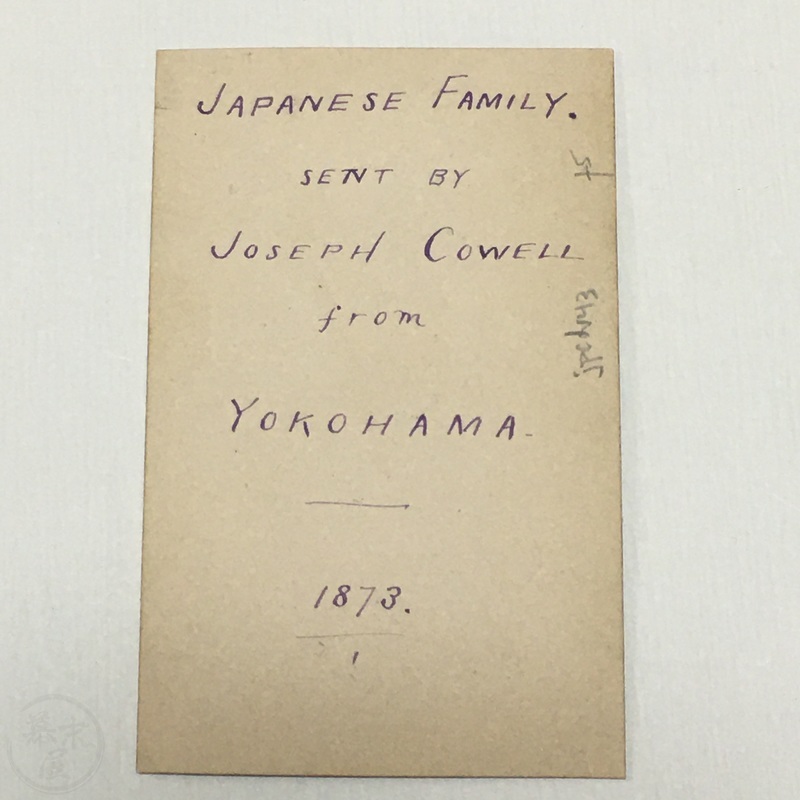 JAPANESE FAMILY.
SENT BY
JOSEPH COWELL
from
YOKOHAMA.
1873.